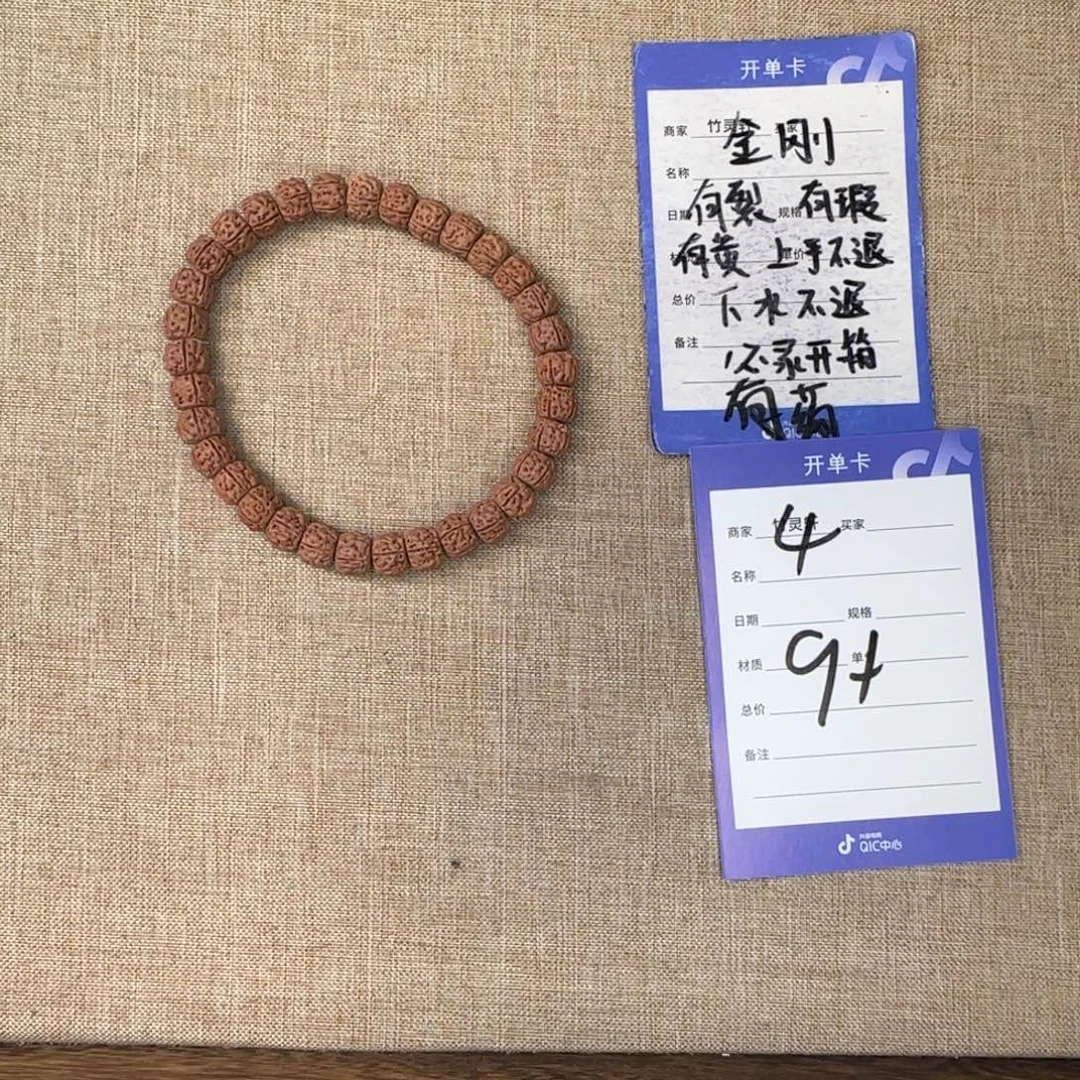 开单卡
商家 竹灵轩
金刚
名称
日期 规格
有裂 有瑕
有黄 上手不退
单价
总价
下水不退
备注
必录开箱
有药
开单卡
商家 竹灵轩 买家
4
名称
日期 规格
材质 单价
9+
总价
备注
抖音电商
QIC中心